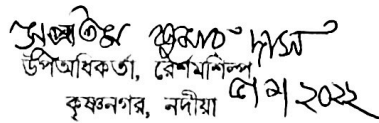 কুমার দাস
উপঅধিকর্তা, রেশমশিল্প
কৃষ্ণনগর, নদীয়া ২০২২